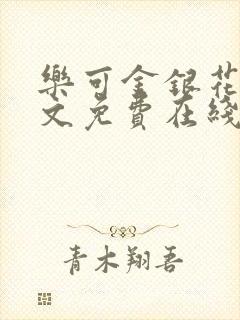 樂可金銀花
文免費在綫
青木翔吾